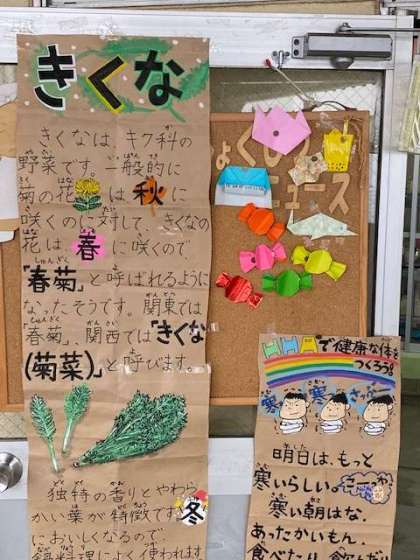 きくな
きくなは、キク科の
野菜です。一般的に
菊の花は秋に
咲くのに対して、きくなの
花は春に咲くので
「春菊」と呼ばれるように
なったそうです。関東では
「春菊」、関西では「きくな
(菊菜)」と呼びます。
独特の香りとやわら
かい葉が特徴です。冬
においしくなるので
料理によく使われます
ょくしつ
ニュース
で健康な体を
つくろう!
寒 寒
明日は、もっと
寒いらしい。
寒い朝はな、
あったかいもん、
食べたり、飲んだり